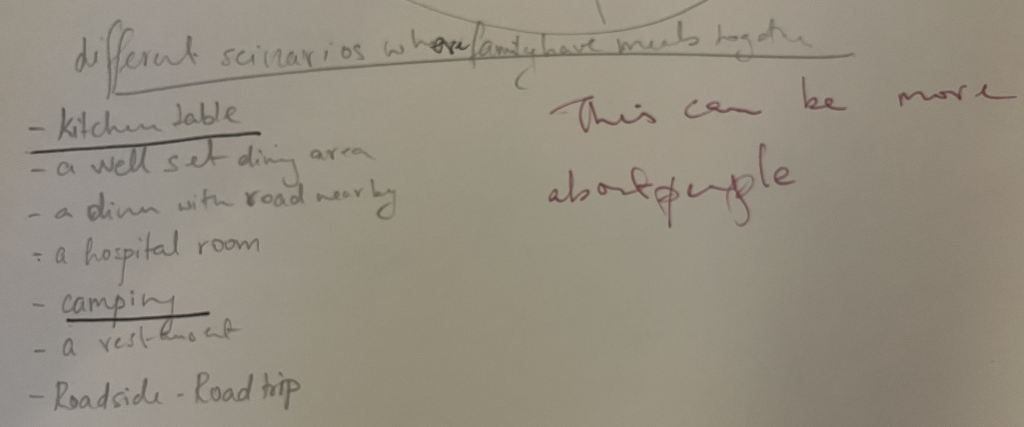 different scinarios where family have meals togethe
- Kitchen table
- a well set dining area
- a diner with road nearby
- a hospital room
- camping
- a restaurant
- Roadside - Road trip
This can be more
about people